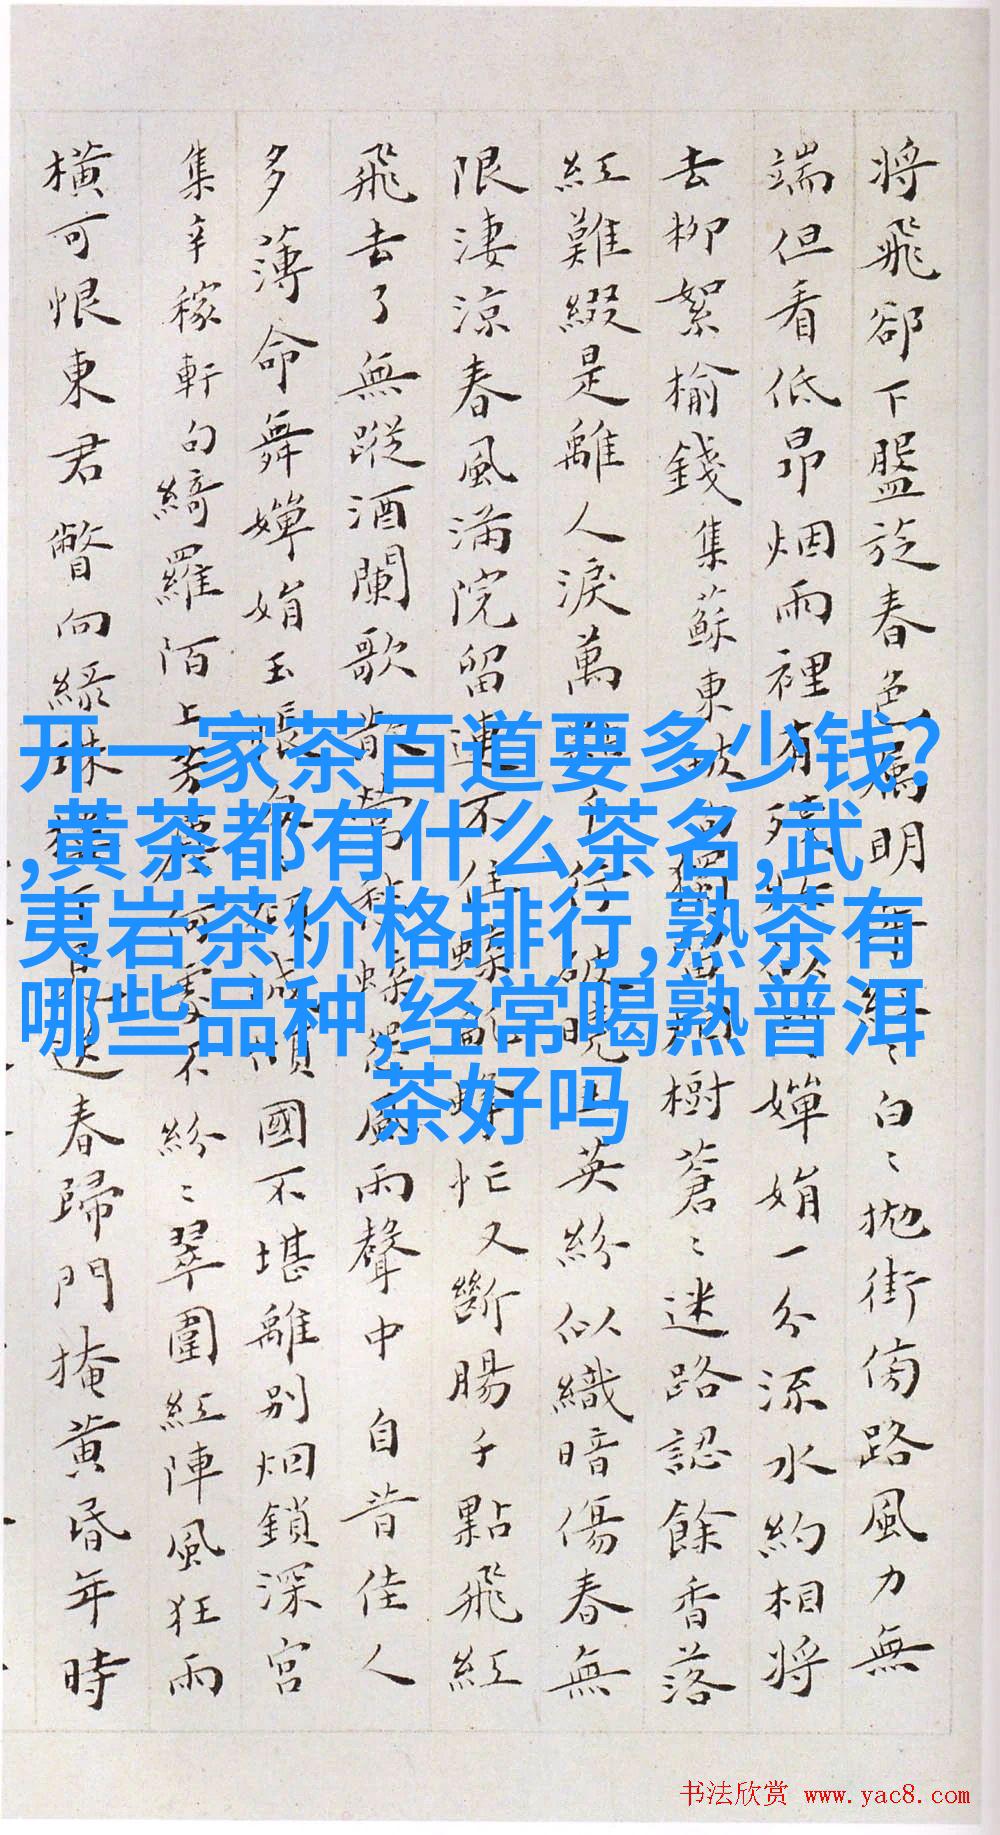 將飛卻下盤旋春色屬明年白〻拋街傍路風力無
端但看低昂烟雨裡有嬋娟一分流水約相將
去柳絮榆錢集蘇東坡句獨樹蒼〻迷路認餘香落
紅難綴是離人淚萬千行破曉玉英紛似織暗傷春無
限淒涼春風滿院留連不住蝶亂蜂忙又斷腸千點飛紅
飛去了無蹤酒闌歌散鶯愁蝶怨風雨聲中自昔佳人
多薄命舞嬋娟玉帳傾城傾國不堪離別烟鎖深宮
集辛稼軒句綺羅陌上芳何處不紛〻翠圍紅陣風狂雨
橫可恨東君瞥向緣珠春歸門掩黃昏年時
开一家茶百道要多少钱?
,黄茶都有什么茶名,武
夷岩茶价格排行,熟茶有
哪些品种,经常喝熟普洱
茶好吗
书法欣赏 www.yac8.com